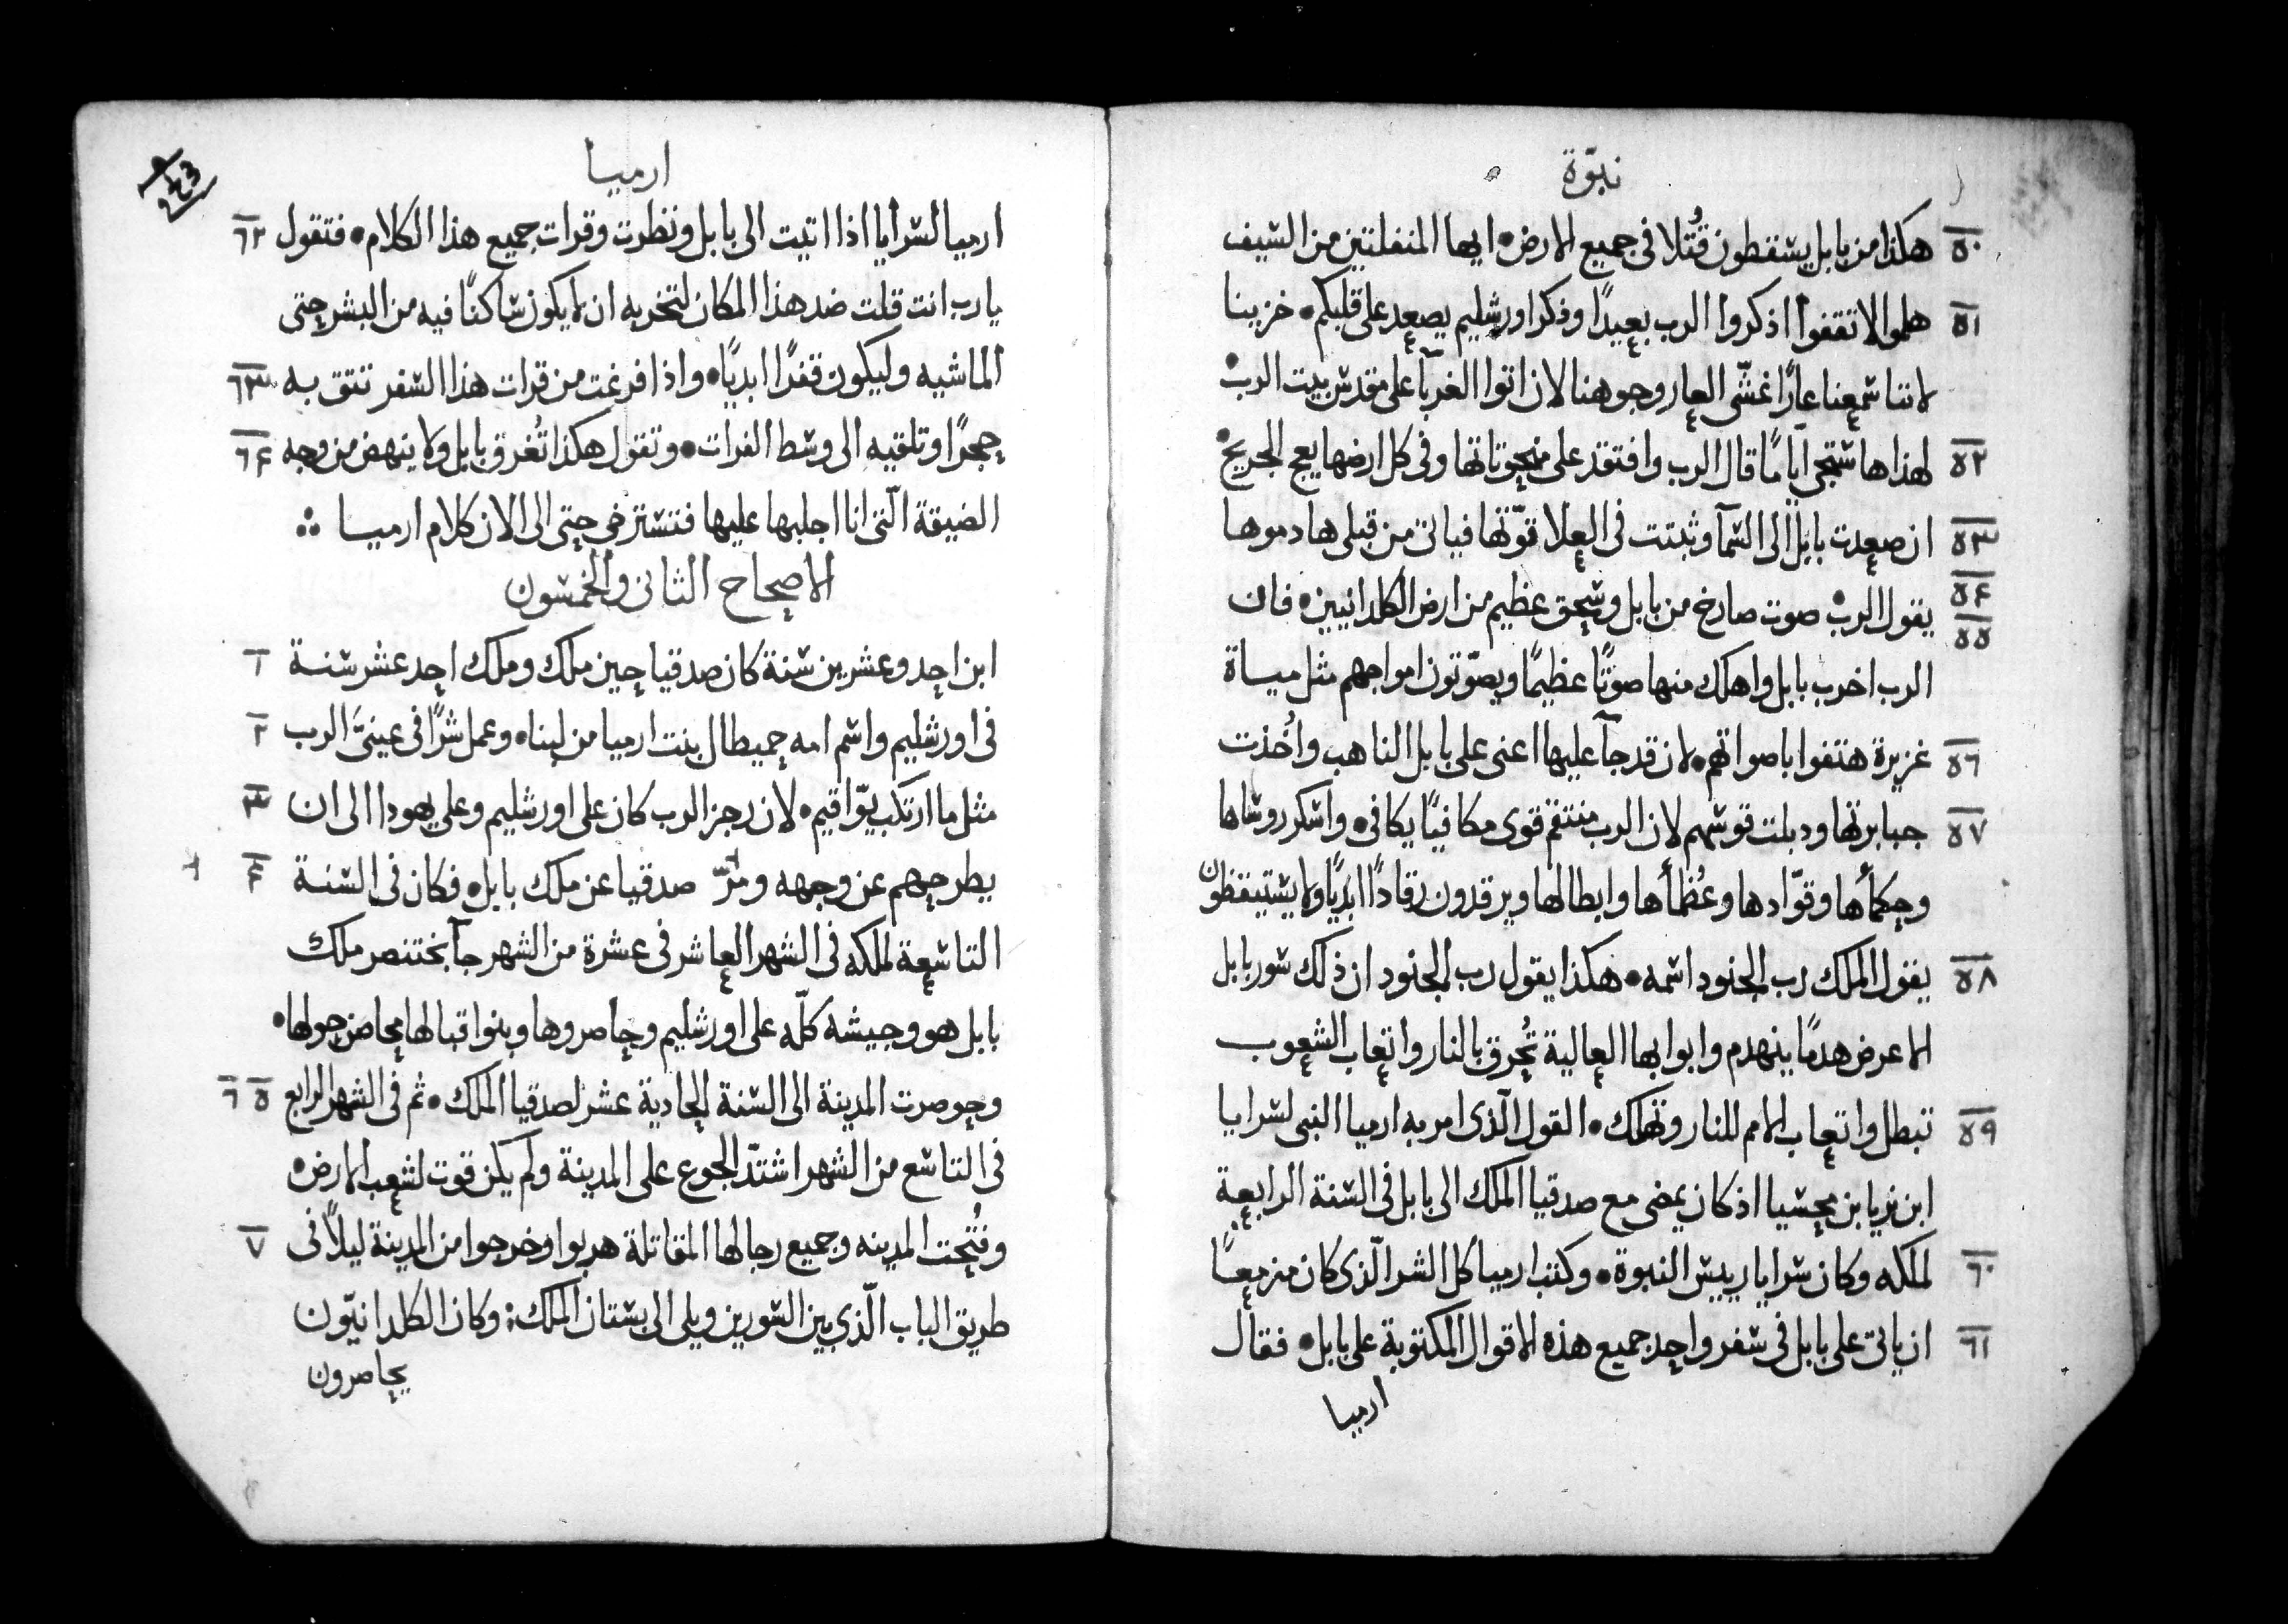 نبوّة
٥٠ هكذا من بابل يسقطون قُتلا فى جميع الارض• ايها المنفلتين من السيف
٥١ هلموا لا تقفوا اذكروا الرب بعيدًا وذكر اورشليم يصعد على قلبكم• خزينا
لاننا سمعنا عارًا غشّى العار وجوهنا لان اتوا الغربآ على مقدس بيت الرب•
٥٢ لهذا ها ستجى ايامًا قال الرب وافتقد على منحوتاتها وفى كل ارضها يعج الجريح•
٥٣ ان صعدت بابل الى السمآ وثبتت فى العلا قوّتها فياتى من قبلى هادموها
٥٤ ٥٥ يقول الرب• صوت صارخ من بابل وسحق عظيم من ارض الكلدانيين• فان
الرب اخرب بابل واهلك منها صوتًا عظيمًا ويصوّتون امواجهم مثل مياة
٥٦ غزيرة هتفوا باصواتهم• لان قد جآ عليها اعنى على بابل الناهب واُخذت
٥٧ جبابرتها ودبلت قوسهم لان الرب منتقم قوى مكافيًا يكافى• واسكر روساها
وحكمأها وقوّادها وعُظمأها وابطالها ويرقدون رقادًا ابديًا ولا يستيقظون
٥٨ يقول الملك رب الجنود اسمه• هكذا يقول رب الجنود ان ذلك سور بابل
الاعرض هدمًا ينهدم وابوابها العالية تُحرق بالنار واتعاب الشعوب
٥٩ تبطل واتعاب الامم للنار وتهلك• القول الّذى امر به ارميا النبى لسرايا
ابن نريا بن محسيا اذ كان يمضى مع صدقيا الملك الى بابل فى السنة الرابعة
٦٠ لملكه وكان سرايا رييس النبوة• وكتب ارميا كل الشر الّذى كان مزمعًا
٦١ ان ياتى على بابل فى سفر واحد جميع هذه الاقوال المكتوبة على بابل• فقال
ارميا
ارميا
٦٢ ارميا لسرايا اذا اتيت الى بابل ونظرت وقرات جميع هذا الكلام• فتقول
يا رب انت قلت ضد هذا المكان لتخربه ان لا يكون ساكنًا فيه من البشر حتى
٦٣ الماشيه وليكون قفرًا ابديًا• واذا فرغت من قرات هذا السفر تنتق به
٦٤ حجرًا وتلقيه الى وسط الفرات• وتقول هكذا تُغرق بابل ولا ينهض من وجه
الضيقة الّتى انا اجلبها عليها فتسترخى حتى الى الان كلام ارميا ∴
الاصحاح الثانى والخمسون
١ ابن احد وعشرين سنة كان صدقيا حين ملك وملك احد عشر سنة
٢ فى اورشليم واسم امه حميطال بنت ارميا من لبنا• وعمل شرًّا فى عينىَّ الرب
٣ مثل ما ارتكب يوّاقيم• لان رجز الرب كان على اورشليم وعلى يهودا الى ان
٤ يطرحهم عن وجهه ومرّد صدقيا عن ملك بابل• فكان فى السنة
التاسعة لملكه فى الشهر العاشر فى عشرة من الشهر جآ بختنصر ملك
بابل هو وجيشه كلّه على اورشليم وحاصروها وبنوا قبالها محاصن حولها•
٥ ٦ وحوصرت المدينة الى السنة الحادية عشر لصدقيا الملك• ثم فى الشهر الرابع
فى التاسع من الشهر اشتدّ الجوع على المدينة ولم يكن قوت لشعب الارض•
٧ وفُتحت المدينه وجميع رجالها المقاتلة هربوا وخرجوا من المدينة ليلاً فى
طريق الباب الّذى بين السورين ويلى الى بستان الملك: وكان الكلدانيّون
يحاصرون